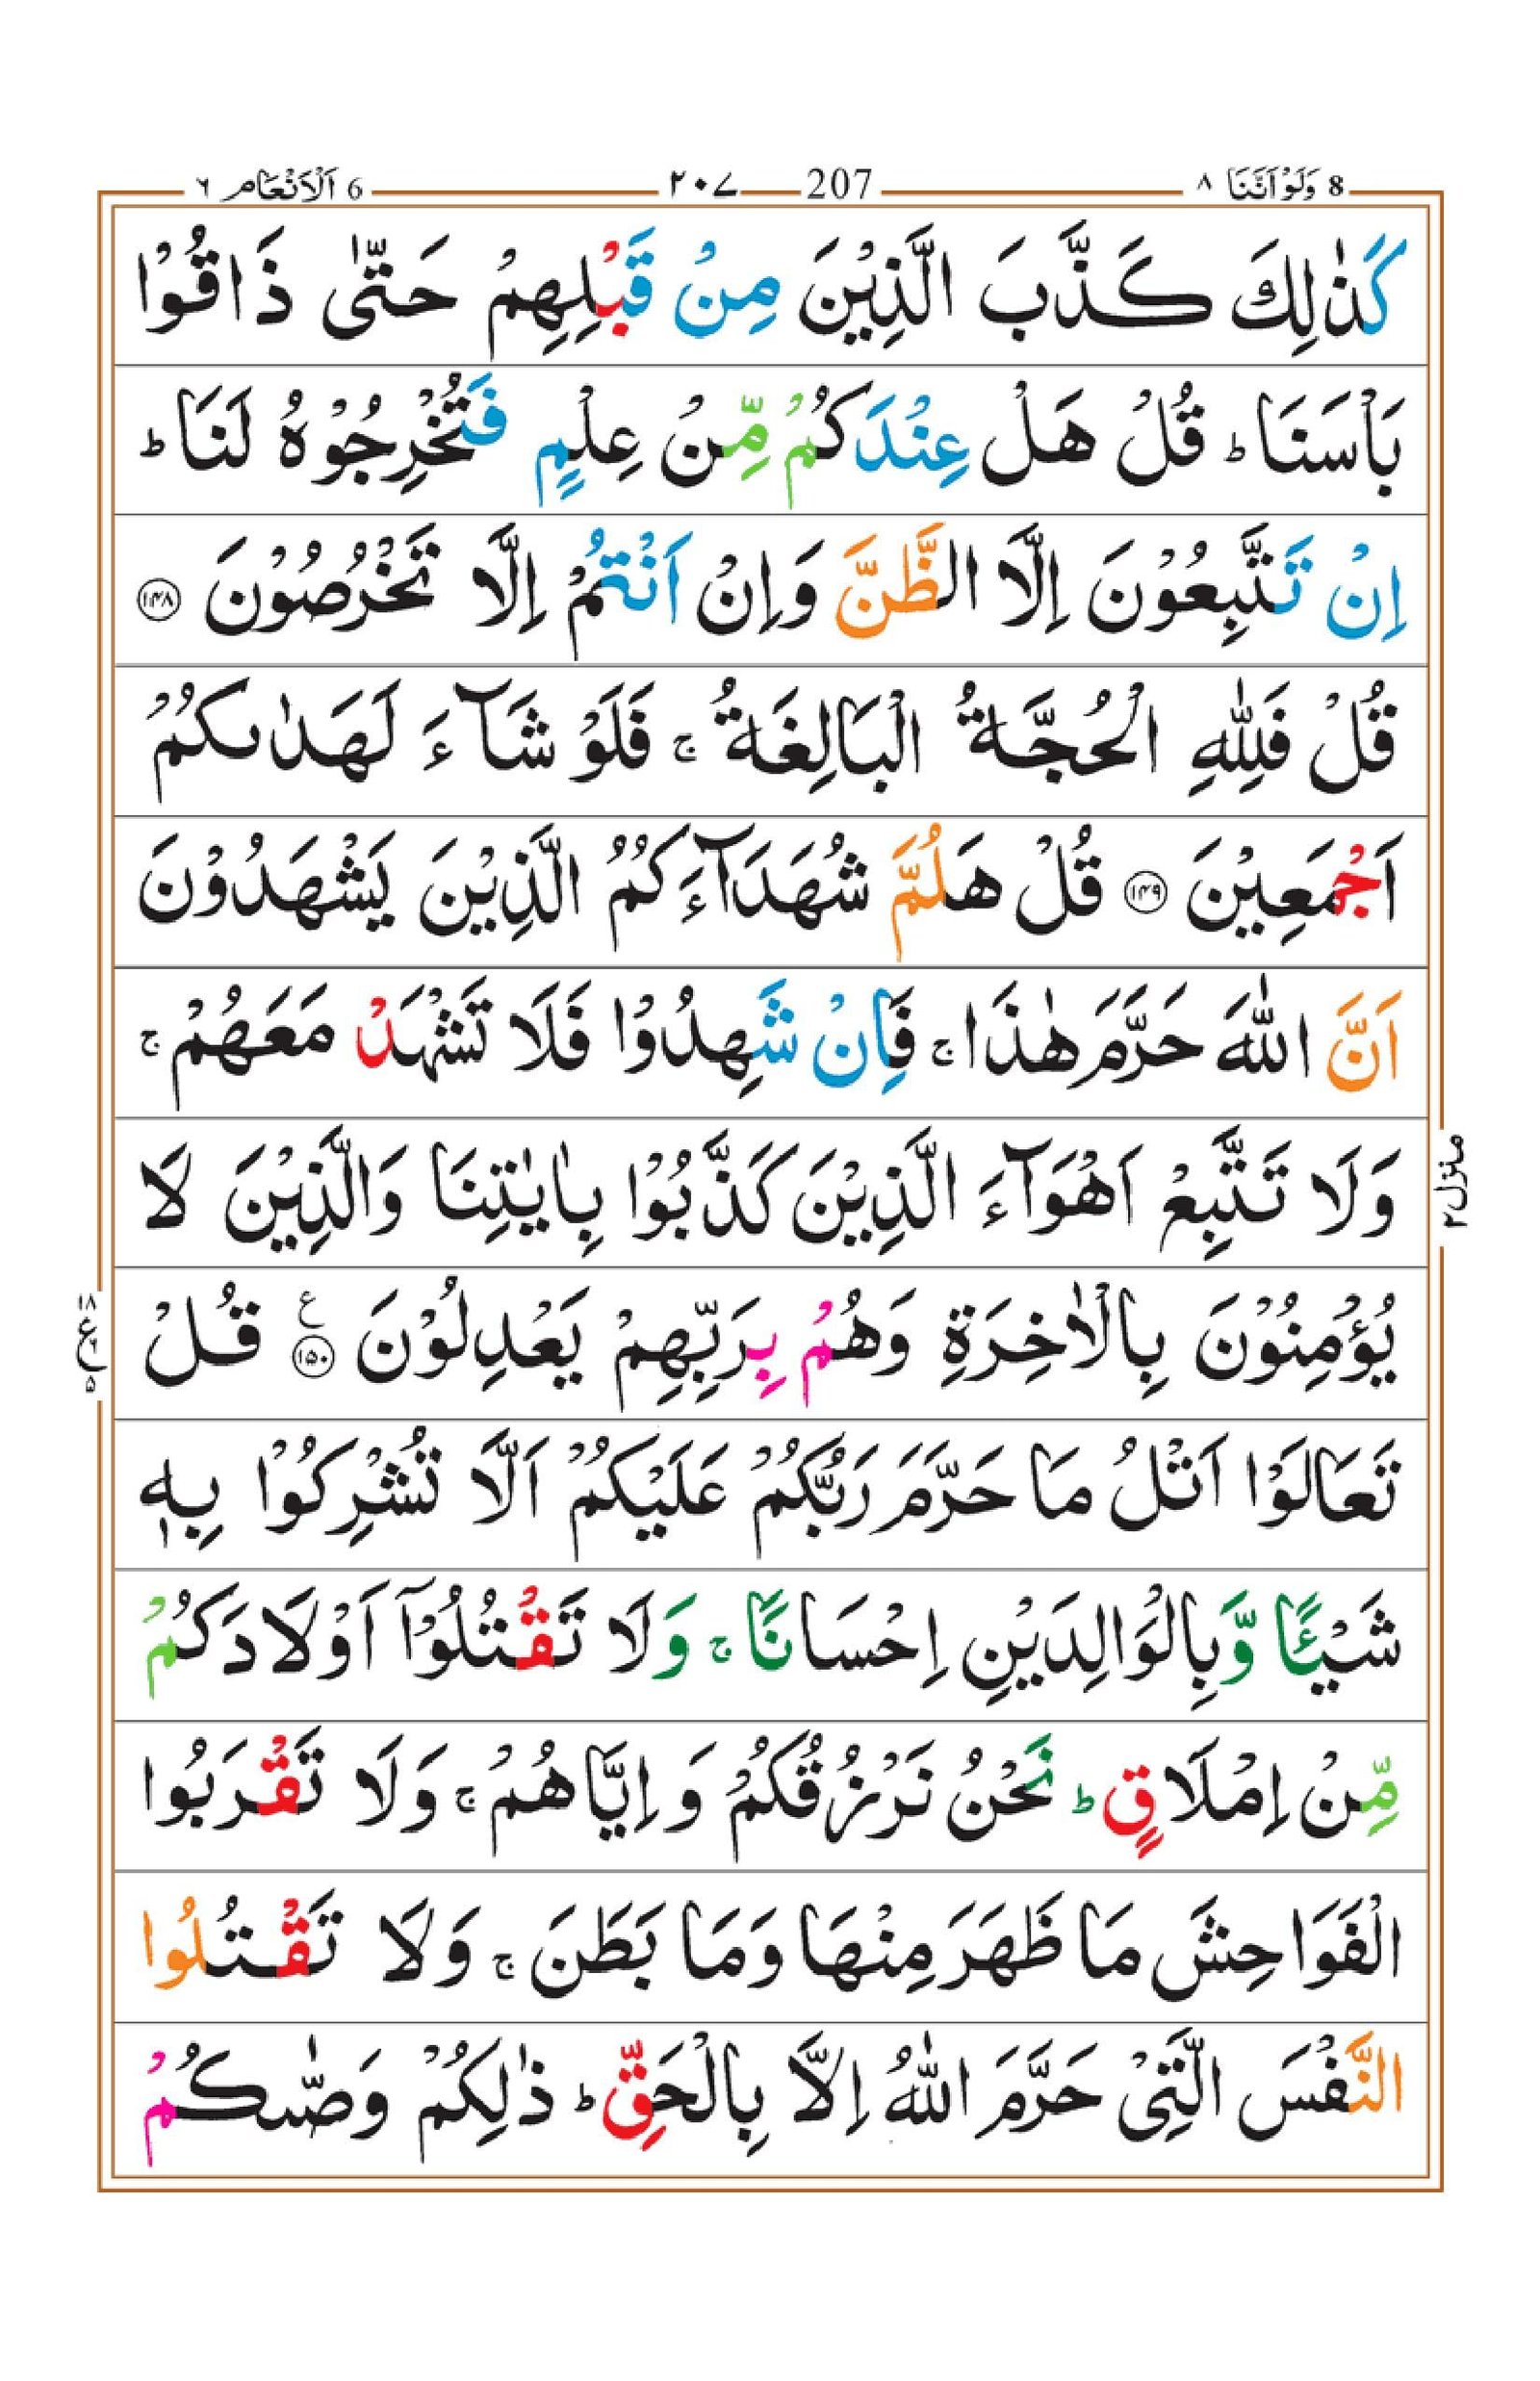 8 وَلَوْ اَنَّنَا ٨ 207 ٢٠٧ 6 اَلْاَنْعَام ٦
كَذٰلِكَ كَذَّبَ الَّذِيْنَ مِنْ قَبْلِهِمْ حَتّٰى ذَاقُوْا
بَاْسَنَا ؕ قُلْ هَلْ عِنْدَكُمْ مِّنْ عِلْمٍ فَتُخْرِجُوْهُ لَنَا ؕ
اِنْ تَتَّبِعُوْنَ اِلَّا الظَّنَّ وَاِنْ اَنْتُمْ اِلَّا تَخْرُصُوْنَ ۝۱۴۸
قُلْ فَلِلّٰهِ الْحُجَّةُ الْبَالِغَةُ ۚ فَلَوْ شَآءَ لَهَدٰىكُمْ
اَجْمَعِيْنَ ۝۱۴۹ قُلْ هَلُمَّ شُهَدَآءَكُمُ الَّذِيْنَ يَشْهَدُوْنَ
اَنَّ اللّٰهَ حَرَّمَ هٰذَا ۚ فَاِنْ شَهِدُوْا فَلَا تَشْهَدْ مَعَهُمْ ۚ
وَلَا تَتَّبِعْ اَهْوَآءَ الَّذِيْنَ كَذَّبُوْا بِاٰيٰتِنَا وَالَّذِيْنَ لَا
منزل ٢
يُؤْمِنُوْنَ بِالْاٰخِرَةِ وَهُمْ بِرَبِّهِمْ يَعْدِلُوْنَ ۝۱۵۰ ع قُلْ
۱۸ ع ۵
تَعَالَوْا اَتْلُ مَا حَرَّمَ رَبُّكُمْ عَلَيْكُمْ اَلَّا تُشْرِكُوْا بِهٖ
شَيْـًٔا وَّبِالْوَالِدَيْنِ اِحْسَانًا ۚ وَلَا تَقْتُلُوْۤا اَوْلَادَكُمْ
مِّنْ اِمْلَاقٍ ؕ نَحْنُ نَرْزُقُكُمْ وَاِيَّاهُمْ ۚ وَلَا تَقْرَبُوا
الْفَوَاحِشَ مَا ظَهَرَ مِنْهَا وَمَا بَطَنَ ۚ وَلَا تَقْتُلُوا
النَّفْسَ الَّتِيْ حَرَّمَ اللّٰهُ اِلَّا بِالْحَقِّ ؕ ذٰلِكُمْ وَصّٰىكُمْ